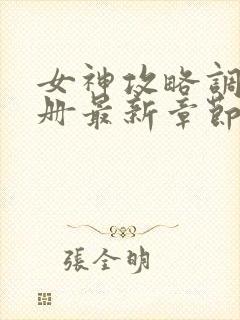 女神攻略調
册最新章節
張全明